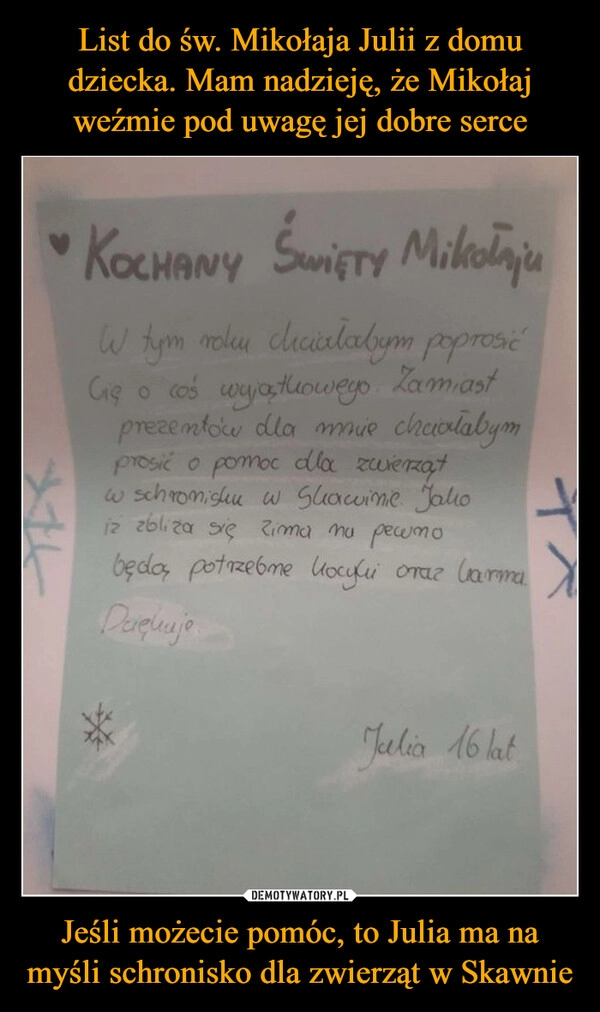 List do św. Mikołaja Julii z domu
dziecka. Mam nadzieję, że Mikołaj
weźmie pod uwagę jej dobre serce
♥ KOCHANY ŚWIĘTY Mikołaju
W tym roku chciałabym poprosić
Cię o coś wyjątkowego. Zamiast
prezentów dla mnie chciałabym
prosić o pomoc dla zwierząt
w schronisku w Skawinie. Jako
iż zbliża się zima na pewno
będą potrzebne kocyki oraz karma.
Dziękuję.
Julia 16 lat
DEMOTYWATORY.PL
Jeśli możecie pomóc, to Julia ma na
myśli schronisko dla zwierząt w Skawnie